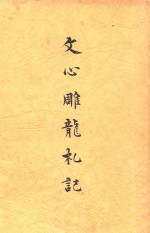 文心雕龍札記